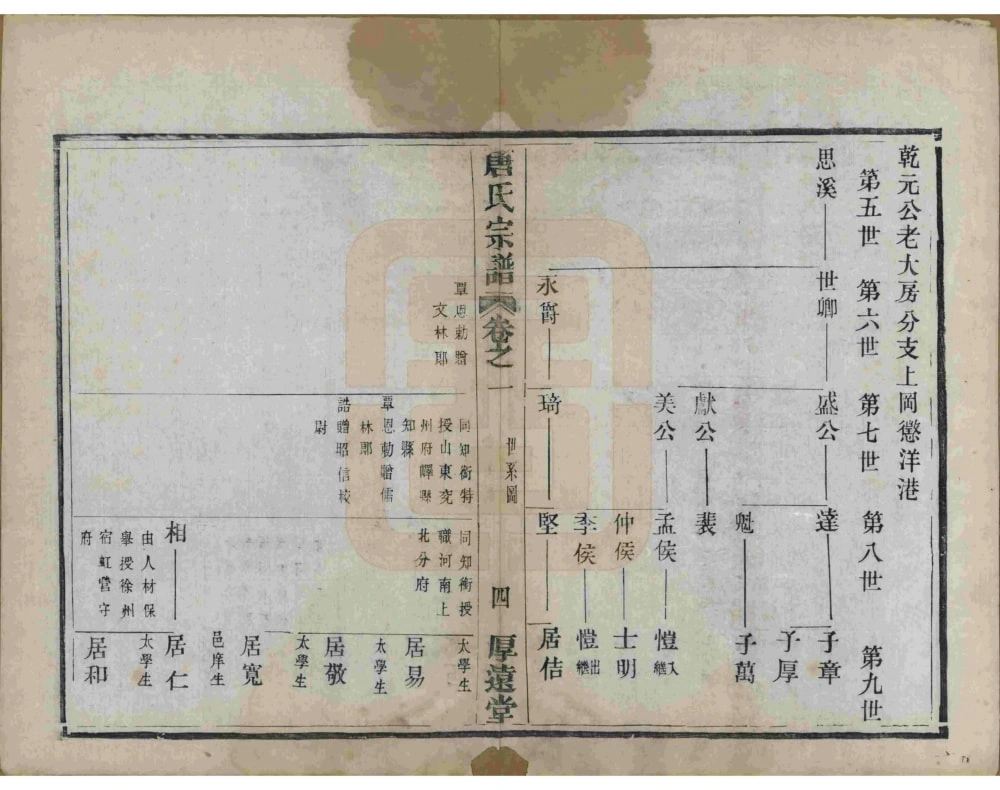 乾元公老大房分支上岡懲洋港
第五世 第六世 第七世 第八世 第九世
思溪 世卿 盛公 達 子章
子厚
魁 子萬
獻公 裴
美公 孟侯 愷 入繼
仲侯 士明
季侯 愷 出繼
永爵 琦 堅 居佶
唐氏宗譜 卷之一 世系圖 四 厚遠堂
覃恩勅贈
文林郎
同知銜特
授山東兖
州府嶧縣
知縣
覃恩勅贈儒
林郎
誥贈昭信校
尉
同知銜授
職河南上
北分府
太學生
居易
太學生
居敬
太學生
居寬
邑庠生
相 居仁
由人材保
舉授徐州
宿虹營守
府
太學生
居和